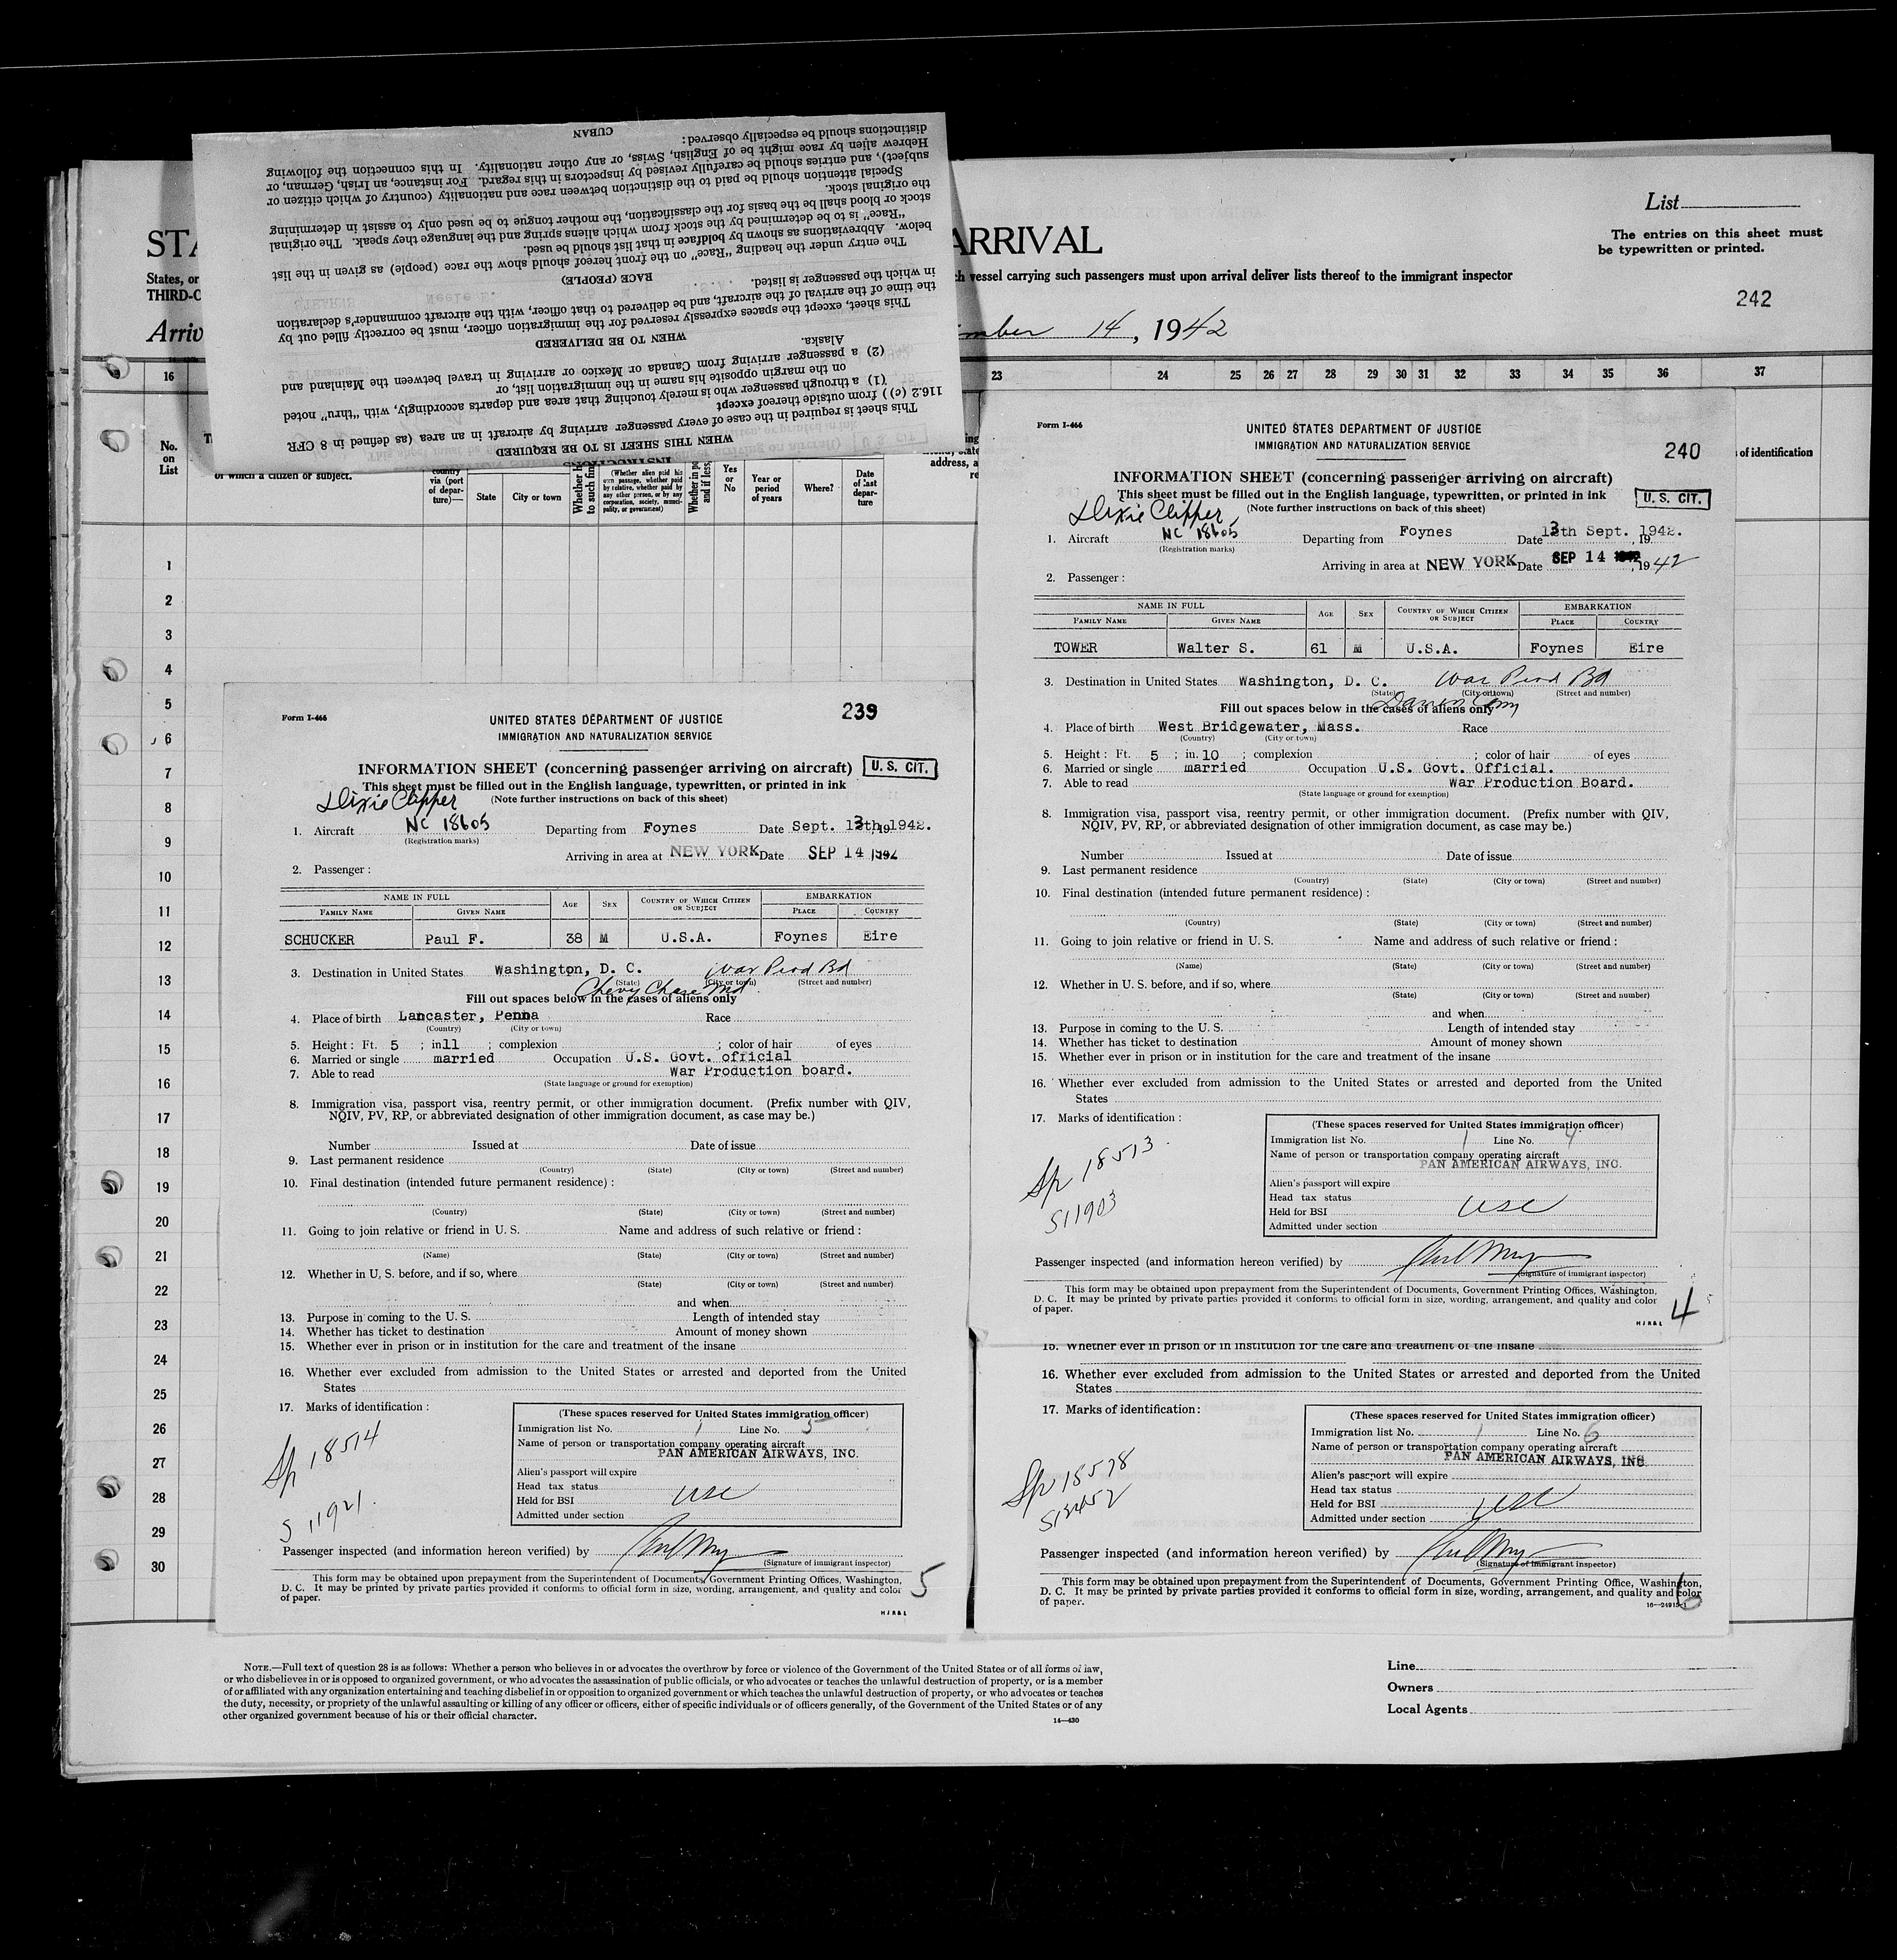 WHEN THIS SHEET IS TO BE REQUIRED
This sheet is required in the case of every passenger arriving by aircraft in an area (as defined in 8 CFR
116.2 (c)) from outside thereof except
(1) a through passenger who is merely touching that area and departs accordingly, with "thru" noted
on the margin opposite his name in the immigration list, or
(2) a passenger arriving from Canada or Mexico or arriving in travel between the Mainland and
Alaska.
WHEN TO BE DELIVERED
This sheet, except the spaces expressly reserved for the immigration officer, must be correctly filled out by
the time of the arrival of the aircraft, and be delivered to that officer, with the aircraft commander's declaration
in which the passenger is listed.
RACE (PEOPLE)
The entry under the heading "Race" on the front hereof should show the race (people) as given in the list
below. Abbreviations as shown by boldface in that list should be used.
"Race" is to be determined by the stock from which aliens spring and the language they speak. The original
stock or blood shall be the basis for the classification, the mother tongue to be used only to assist in determining
the original stock.
Special attention should be paid to the distinction between race and nationality (country of which citizen or
subject), and entries should be carefully revised by inspectors in this regard. For instance, an Irish, German, or
Hebrew alien by race might be of English, Swiss, or any other nationality. In this connection the following
distinctions should be especially observed:
CUBAN
List
STA ARRIVAL
The entries on this sheet must
be typewritten or printed.
States, or
vessel carrying such passengers must upon arrival deliver lists thereof to the immigrant inspector
THIRD-C
242
Arriv mber 14, 1942
16 23 24 25 26 27 28 29 30 31 32 33 34 35 36 37
No.
on
List
of which a citizen or subject.
country
via (port
of depar-
ture)—
State
City or town
Whether
to such
(Whether alien paid his
own passage, whether paid
by relative, whether paid by
any other person, or by any
corporation, society, munici-
pality, or government)
Whether in
and if less,
Yes
or
No
Year or
period
of years
Where?
Date
of last
depar-
ture
address, a
of identification
1
2
3
4
5
6
7
8
9
10
11
12
13
14
15
16
17
18
19
20
21
22
23
24
25
26
27
28
29
30
Form I-466
239
UNITED STATES DEPARTMENT OF JUSTICE
IMMIGRATION AND NATURALIZATION SERVICE
INFORMATION SHEET (concerning passenger arriving on aircraft)
U. S. CIT.
This sheet must be filled out in the English language, typewritten, or printed in ink
Dixie Clipper (Note further instructions on back of this sheet)
1. Aircraft NC 18605 Departing from Foynes Date Sept. 13th, 19 1942.
(Registration marks)
Arriving in area at NEW YORK Date SEP 14 1942
2. Passenger:
NAME IN FULL AGE SEX COUNTRY OF WHICH CITIZEN OR SUBJECT EMBARKATION
FAMILY NAME GIVEN NAME PLACE COUNTRY
SCHUCKER Paul F. 38 M U.S.A. Foynes Eire
3. Destination in United States Washington, D. C. War Prod Bd
(State) (City or town) (Street and number)
Chevy Chase Md
Fill out spaces below in the cases of aliens only
4. Place of birth Lancaster, Penna Race
(Country) (City or town)
5. Height: Ft. 5 ; in 11 ; complexion ; color of hair of eyes
6. Married or single married Occupation U.S. Govt. official
7. Able to read War Production board.
(State language or ground for exemption)
8. Immigration visa, passport visa, reentry permit, or other immigration document. (Prefix number with QIV,
NQIV, PV, RP, or abbreviated designation of other immigration document, as case may be.)
Number Issued at Date of issue
9. Last permanent residence
(Country) (State) (City or town) (Street and number)
10. Final destination (intended future permanent residence):
(Country) (State) (City or town) (Street and number)
11. Going to join relative or friend in U. S. Name and address of such relative or friend:
(Name) (State) (City or town) (Street and number)
12. Whether in U. S. before, and if so, where
(State) (City or town) (Street and number)
and when
13. Purpose in coming to the U. S. Length of intended stay
14. Whether has ticket to destination Amount of money shown
15. Whether ever in prison or in institution for the care and treatment of the insane
16. Whether ever excluded from admission to the United States or arrested and deported from the United
States
17. Marks of identification:
Sp 18514
S 11921.
(These spaces reserved for United States immigration officer)
Immigration list No. 1 Line No. 5
Name of person or transportation company operating aircraft
PAN AMERICAN AIRWAYS, INC.
Alien's passport will expire
Head tax status
Held for BSI usc
Admitted under section
Passenger inspected (and information hereon verified) by
(Signature of immigrant inspector)
This form may be obtained upon prepayment from the Superintendent of Documents, Government Printing Offices, Washington,
D. C. It may be printed by private parties provided it conforms to official form in size, wording, arrangement, and quality and color
of paper.
5
HJR&L
Form I-466
UNITED STATES DEPARTMENT OF JUSTICE
IMMIGRATION AND NATURALIZATION SERVICE
240
INFORMATION SHEET (concerning passenger arriving on aircraft)
This sheet must be filled out in the English language, typewritten, or printed in ink
U. S. CIT.
Dixie Clipper, (Note further instructions on back of this sheet)
1. Aircraft NC 18605 Departing from Foynes Date 13th Sept. 1942.
(Registration marks)
Arriving in area at NEW YORK Date SEP 14 1942
2. Passenger:
NAME IN FULL AGE SEX COUNTRY OF WHICH CITIZEN OR SUBJECT EMBARKATION
FAMILY NAME GIVEN NAME PLACE COUNTRY
TOWER Walter S. 61 M U.S.A. Foynes Eire
3. Destination in United States Washington, D. C. War Prod Bd
(State) (City or town) (Street and number)
Darien Conn
Fill out spaces below in the cases of aliens only
4. Place of birth West Bridgewater, Mass. Race
(Country) (City or town)
5. Height: Ft. 5 ; in. 10 ; complexion ; color of hair of eyes
6. Married or single married Occupation U.S. Govt. Official.
7. Able to read War Production Board.
(State language or ground for exemption)
8. Immigration visa, passport visa, reentry permit, or other immigration document. (Prefix number with QIV,
NQIV, PV, RP, or abbreviated designation of other immigration document, as case may be.)
Number Issued at Date of issue
9. Last permanent residence
(Country) (State) (City or town) (Street and number)
10. Final destination (intended future permanent residence):
(Country) (State) (City or town) (Street and number)
11. Going to join relative or friend in U. S. Name and address of such relative or friend:
(Name) (State) (City or town) (Street and number)
12. Whether in U. S. before, and if so, where
(State) (City or town) (Street and number)
and when
13. Purpose in coming to the U. S. Length of intended stay
14. Whether has ticket to destination Amount of money shown
15. Whether ever in prison or in institution for the care and treatment of the insane
16. Whether ever excluded from admission to the United States or arrested and deported from the United
States
17. Marks of identification:
Sp 18513
S11903
(These spaces reserved for United States immigration officer)
Immigration list No. 1 Line No. 4
Name of person or transportation company operating aircraft
PAN AMERICAN AIRWAYS, INC.
Alien's passport will expire
Head tax status
Held for BSI usc
Admitted under section
Passenger inspected (and information hereon verified) by
(Signature of immigrant inspector)
This form may be obtained upon prepayment from the Superintendent of Documents, Government Printing Offices, Washington,
D. C. It may be printed by private parties provided it conforms to official form in size, wording, arrangement, and quality and color
of paper.
4
HJR&L
15. Whether ever in prison or in institution for the care and treatment of the insane
16. Whether ever excluded from admission to the United States or arrested and deported from the United
States
17. Marks of identification:
Sp 18578
(These spaces reserved for United States immigration officer)
Immigration list No. 1 Line No. 6
Name of person or transportation company operating aircraft
PAN AMERICAN AIRWAYS, INC.
Alien's passport will expire
Head tax status
Held for BSI usc
Admitted under section
Passenger inspected (and information hereon verified) by
(Signature of immigrant inspector)
This form may be obtained upon prepayment from the Superintendent of Documents, Government Printing Office, Washington,
D. C. It may be printed by private parties provided it conforms to official form in size, wording, arrangement, and quality and color
of paper.
16—24915-1
6
NOTE.—Full text of question 28 is as follows: Whether a person who believes in or advocates the overthrow by force or violence of the Government of the United States or of all forms of law,
or who disbelieves in or is opposed to organized government, or who advocates the assassination of public officials, or who advocates or teaches the unlawful destruction of property, or is a member
of or affiliated with any organization entertaining and teaching disbelief in or opposition to organized government or which teaches the unlawful destruction of property, or who advocates or teaches
the duty, necessity, or propriety of the unlawful assaulting or killing of any officer or officers, either of specific individuals or of officers generally, of the Government of the United States or of any
other organized government because of his or their official character.
14—430
Line
Owners
Local Agents